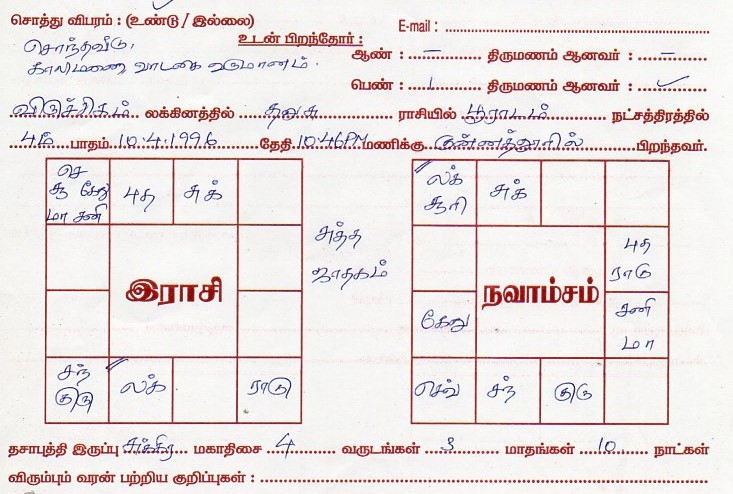 சொத்து விபரம் : (உண்டு / இல்லை)
E-mail :
சொந்தவீடு,
உடன் பிறந்தோர் :
ஆண் : – திருமணம் ஆனவர் : –
காலிமனை, வாடகை வருமானம்.
பெண் : 1 திருமணம் ஆனவர் : ✓
விருச்சிகம் லக்கினத்தில் தனுசு ராசியில் பூராடம் நட்சத்திரத்தில்
4ம் பாதம் 10.4.1996 தேதி 10.46PM மணிக்கு குன்னத்தூரில் பிறந்தவர்.
செ
சூ கேது
மா சனி
புத
சுக்
சுத்த
ஜாதகம்
இராசி
சந்
குரு
லக்
ராகு
லக்
சூரி
சுக்
புத
ராகு
நவாம்சம்
கேது
சனி
மா
செவ்
சந்
குரு
தசாபுத்தி இருப்பு சுக்கிர மகாதிசை 4 வருடங்கள் 3 மாதங்கள் 10 நாட்கள்
விரும்பும் வரன் பற்றிய குறிப்புகள் :